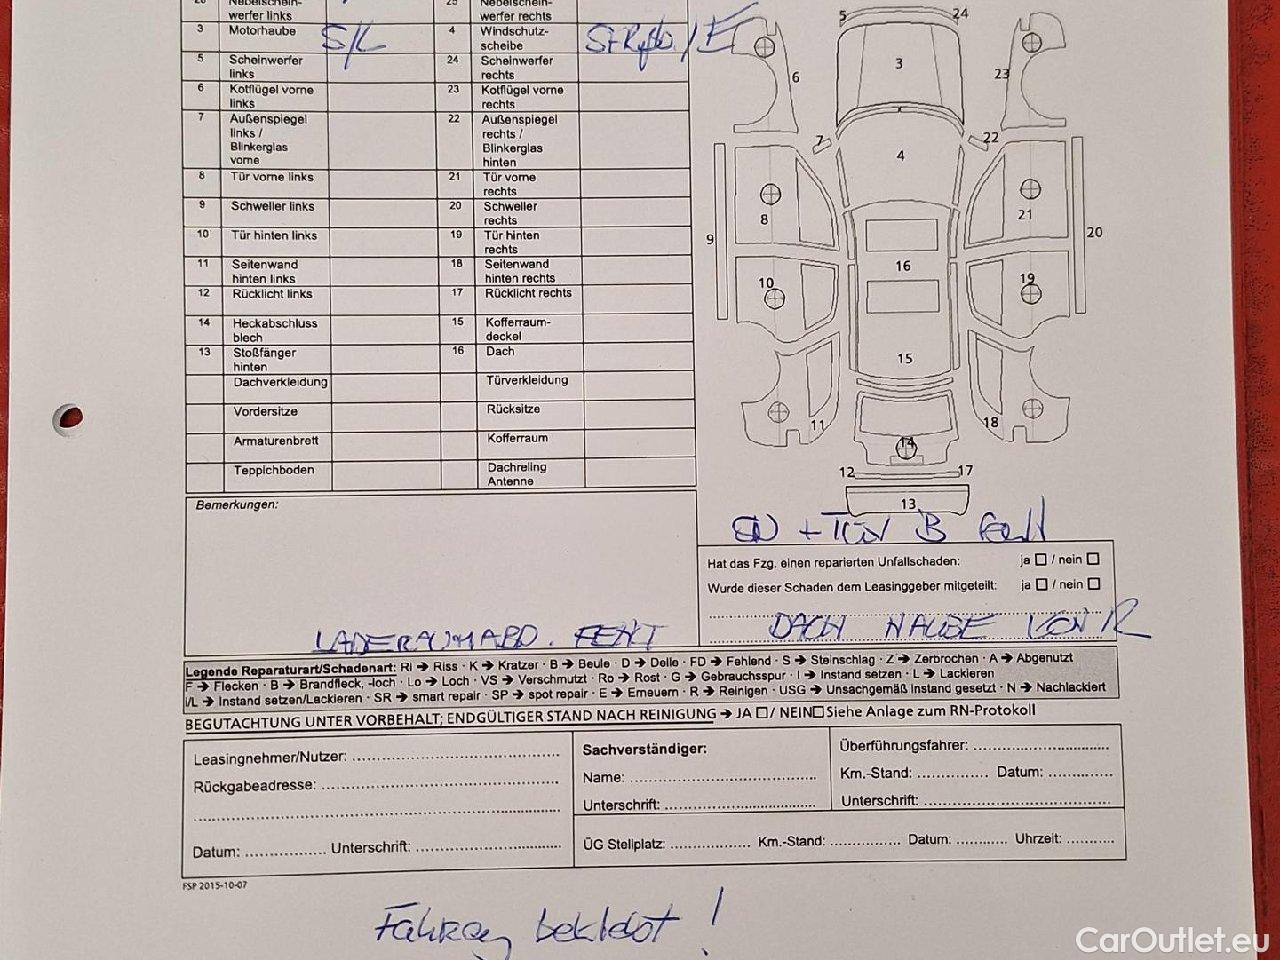 Nebelschein-
werfer links
Nebelschein-
werfer rechts
3 Motorhaube S/L 4 Windschutz-
scheibe / E
5 Scheinwerfer
links
24 Scheinwerfer
rechts
6 Kotflügel vorne
links
23 Kotflügel vorne
rechts
7 Außenspiegel
links /
Blinkerglas
vorne
22 Außenspiegel
rechts /
Blinkerglas
hinten
8 Tür vorne links
21 Tür vorne
rechts
9 Schweller links
20 Schweller
rechts
10 Tür hinten links
19 Tür hinten
rechts
11 Seitenwand
hinten links
18 Seitenwand
hinten rechts
12 Rücklicht links
17 Rücklicht rechts
14 Heckabschluss
blech
15 Kofferraum-
deckel
13 Stoßfänger
hinten
16 Dach
Dachverkleidung
Türverkleidung
Vordersitze
Rücksitze
Armaturenbrett
Kofferraum
Teppichboden
Dachreling
Antenne
5 24
3
6 23
7 22
4
8 21
9 20
16
10 19
15
11 18
14
12 17
13
Bemerkungen:
LADERAUMABD. FEHLT
+ TÜV B Fehlt
Hat das Fzg. einen reparierten Unfallschaden: ja □ / nein □
Wurde dieser Schaden dem Leasinggeber mitgeteilt: ja □ / nein □
DACH HAUBE
Legende Reparaturart/Schadenart: Ri → Riss · K → Kratzer · B → Beule · D → Delle · FD → Fehlend · S → Steinschlag · Z → Zerbrochen · A → Abgenutzt
F → Flecken · B → Brandfleck, -loch · Lo → Loch · VS → Verschmutzt · Ro → Rost · G → Gebrauchsspur · I → Instand setzen · L → Lackieren
I/L → Instand setzen/Lackieren · SR → smart repair · SP → spot repair · E → Erneuern · R → Reinigen · USG → Unsachgemäß Instand gesetzt · N → Nachlackiert
BEGUTACHTUNG UNTER VORBEHALT; ENDGÜLTIGER STAND NACH REINIGUNG → JA □ / NEIN□ Siehe Anlage zum RN-Protokoll
Leasingnehmer/Nutzer:
Rückgabeadresse:
Datum: Unterschrift:
Sachverständiger:
Name:
Unterschrift:
Überführungsfahrer:
Km.-Stand: Datum:
Unterschrift:
ÜG Stellplatz: Km.-Stand: Datum: Uhrzeit:
FSP 2015-10-07
Fahrzeug beklebt!
CarOutlet.eu